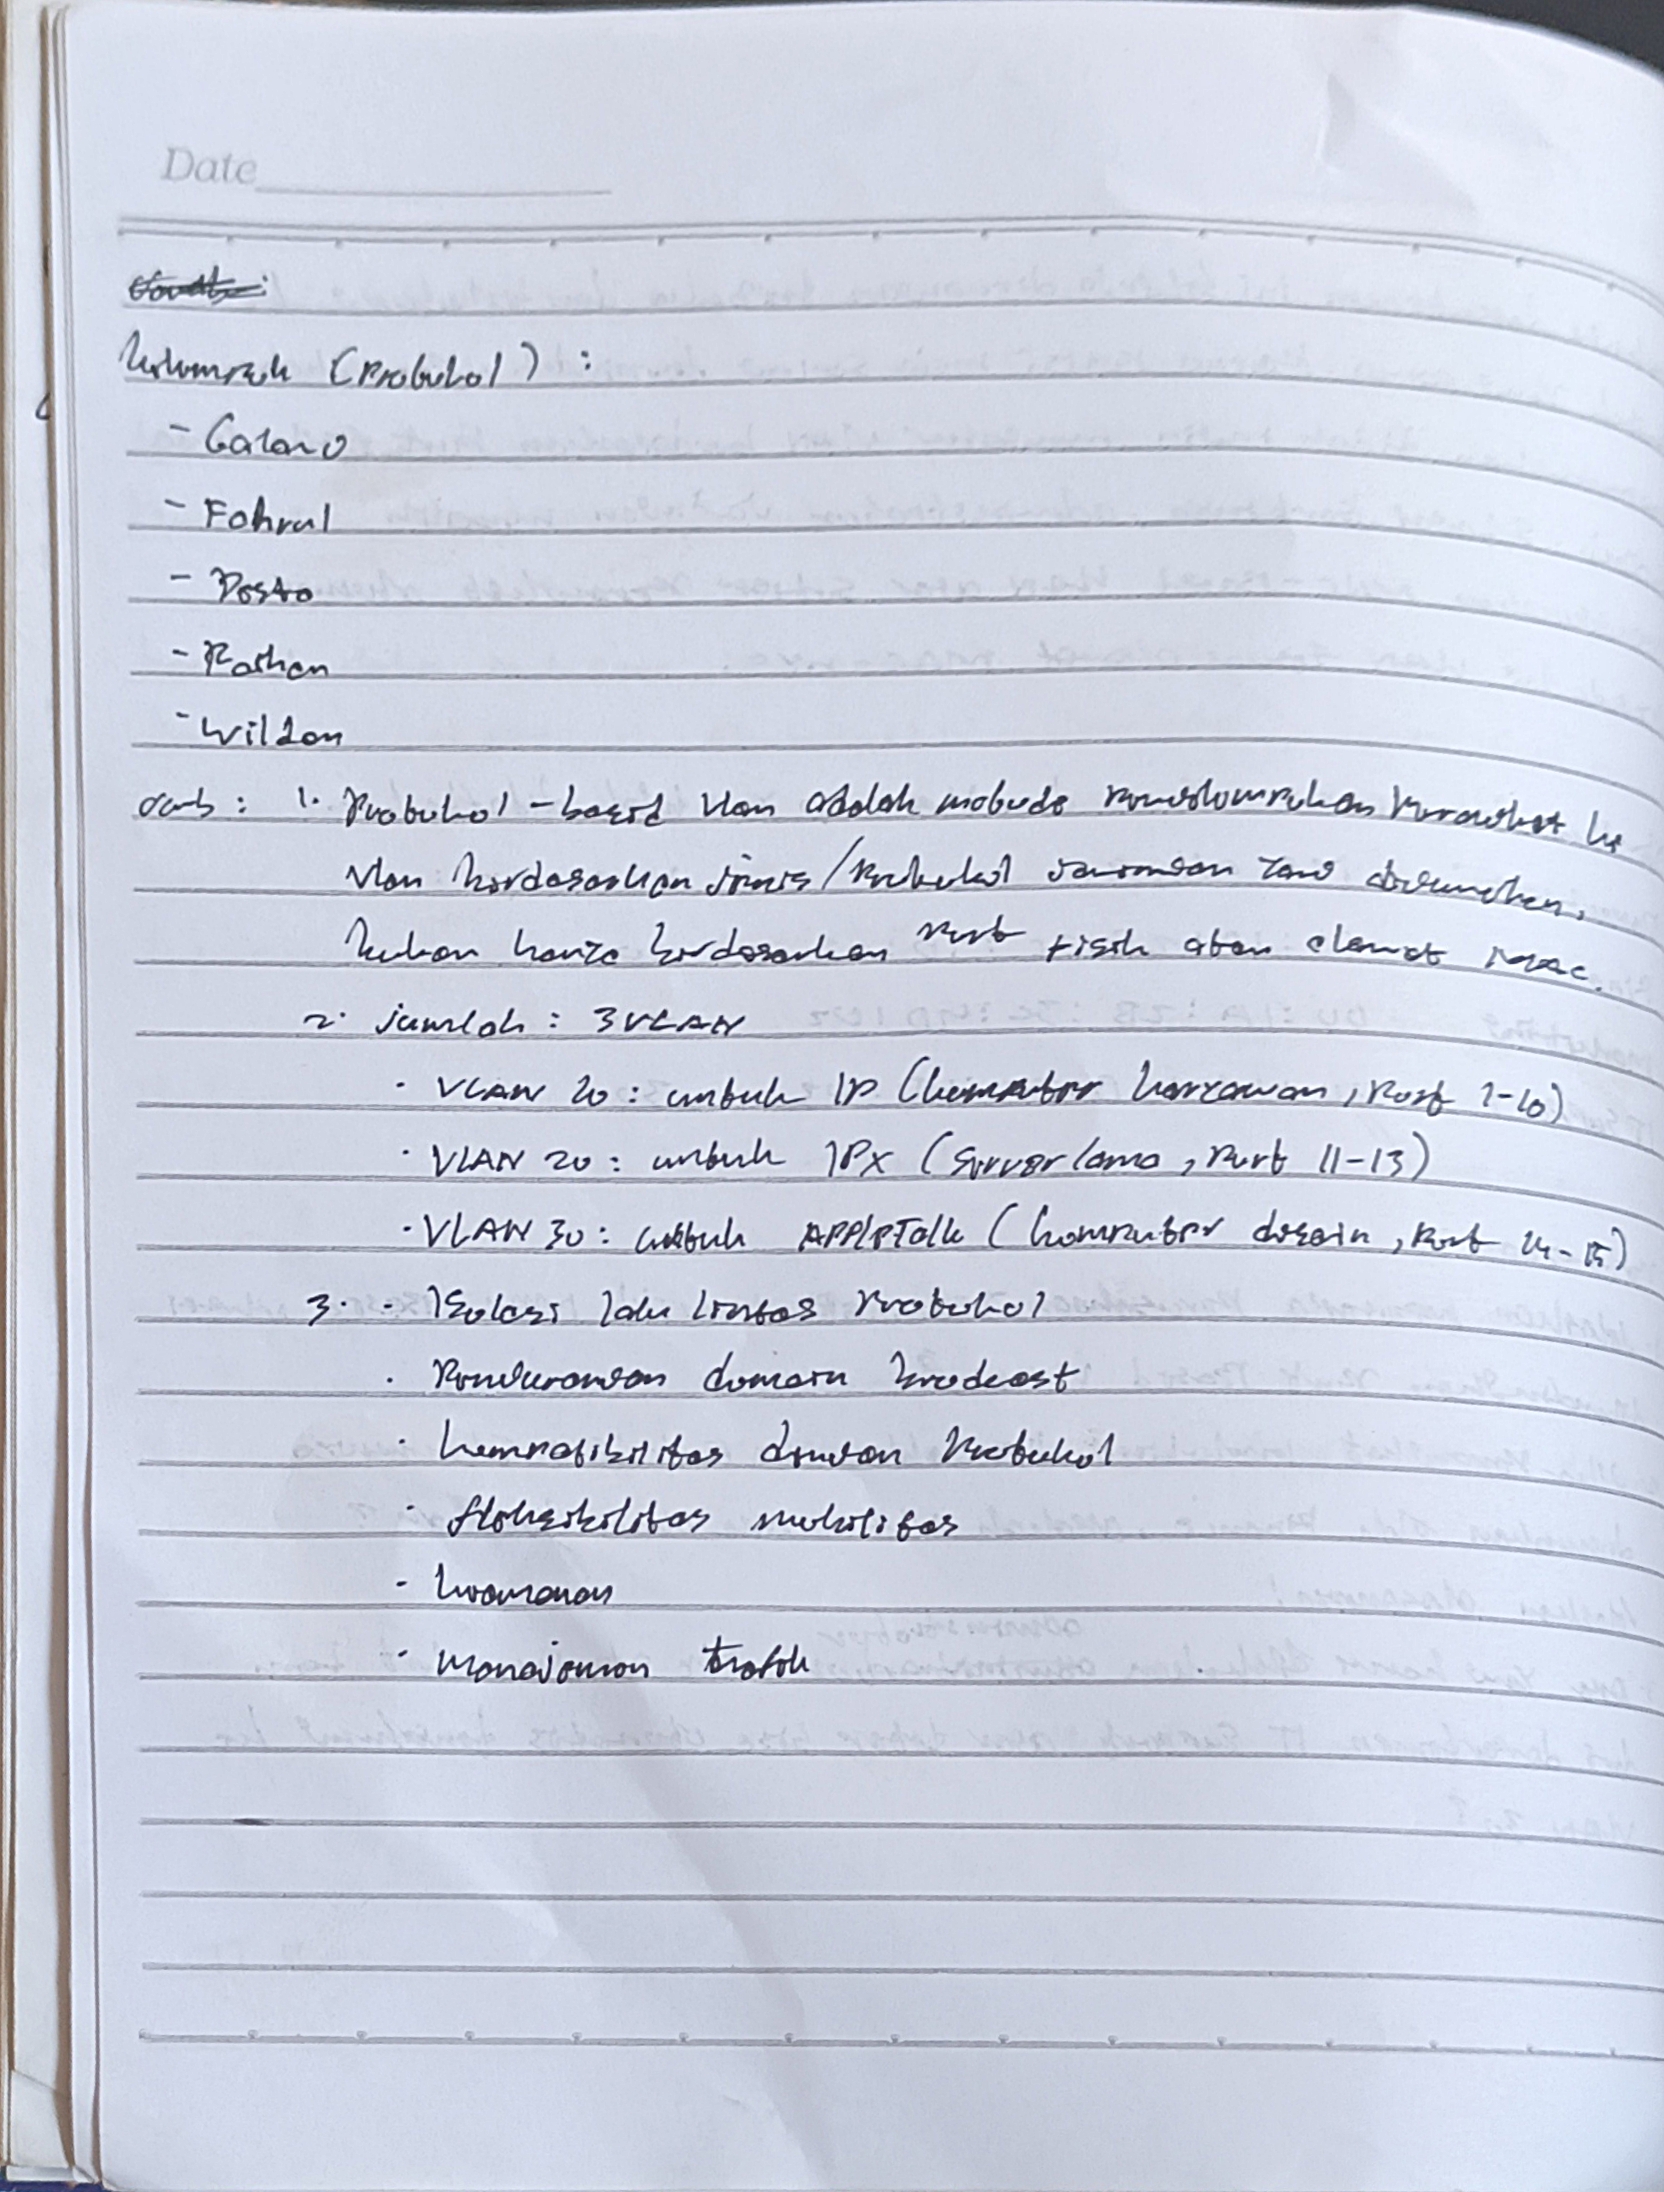 Date
Kelompok (Protokol) :
- Galang
- Fahrul
- Pasta
- Raihan
- Wildan
Jawab : 1. Protokol-based Vlan adalah metode pengelompokan perangkat ke
Vlan berdasarkan jenis/Protokol jaringan yang digunakan,
bukan hanya berdasarkan Port fisik atau alamat Mac.
2. jumlah : 3 VLAN
· VLAN 10 : untuk IP (komputer karyawan, Port 1-10)
· VLAN 20 : untuk IPX (Server lama, Port 11-13)
· VLAN 30 : untuk AppleTalk (komputer desain, Port 14-15)
3. · Isolasi lalu lintas Protokol
· Pengurangan domain broadcast
· kompatibilitas dengan Protokol
· fleksibilitas mobilitas
· keamanan
· manajemen trafik